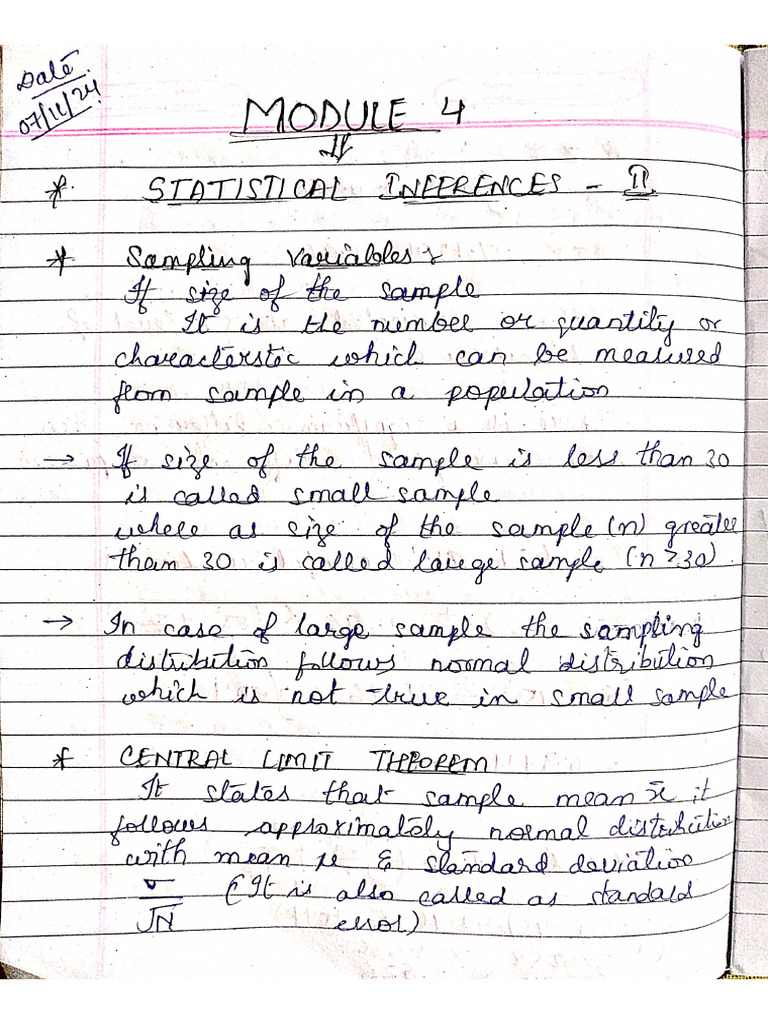 Date
07/11/24
MODULE 4
* STATISTICAL INFERENCES - II
* Sampling Variables :
If size of the sample
It is the number or quantity or
characterstic which can be measured
from sample in a population
→ If size of the sample is less than 30
is called small sample
where as size of the sample (n) greater
than 30 is called large sample (n ≥ 30).
→ In case of large sample the sampling
distribution follows normal distribution
which is not true in small sample
* CENTRAL LIMIT THEOREM
It states that sample mean x̄ it
follows approximately normal distribution
with mean μ & standard deviation
σ/√N (It is also called as standard
error)